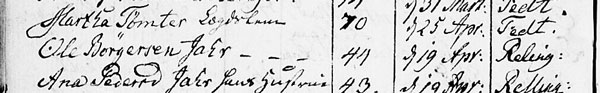 Martha Tømter Lægdslem 70 d 25 Apr: Fedt.
Ole Børgersen Jahr - - - 44 d 19 Apr: Reling:
Ana Pedersd Jahr hans Hustrue 43. d 19 Apr: Relling: